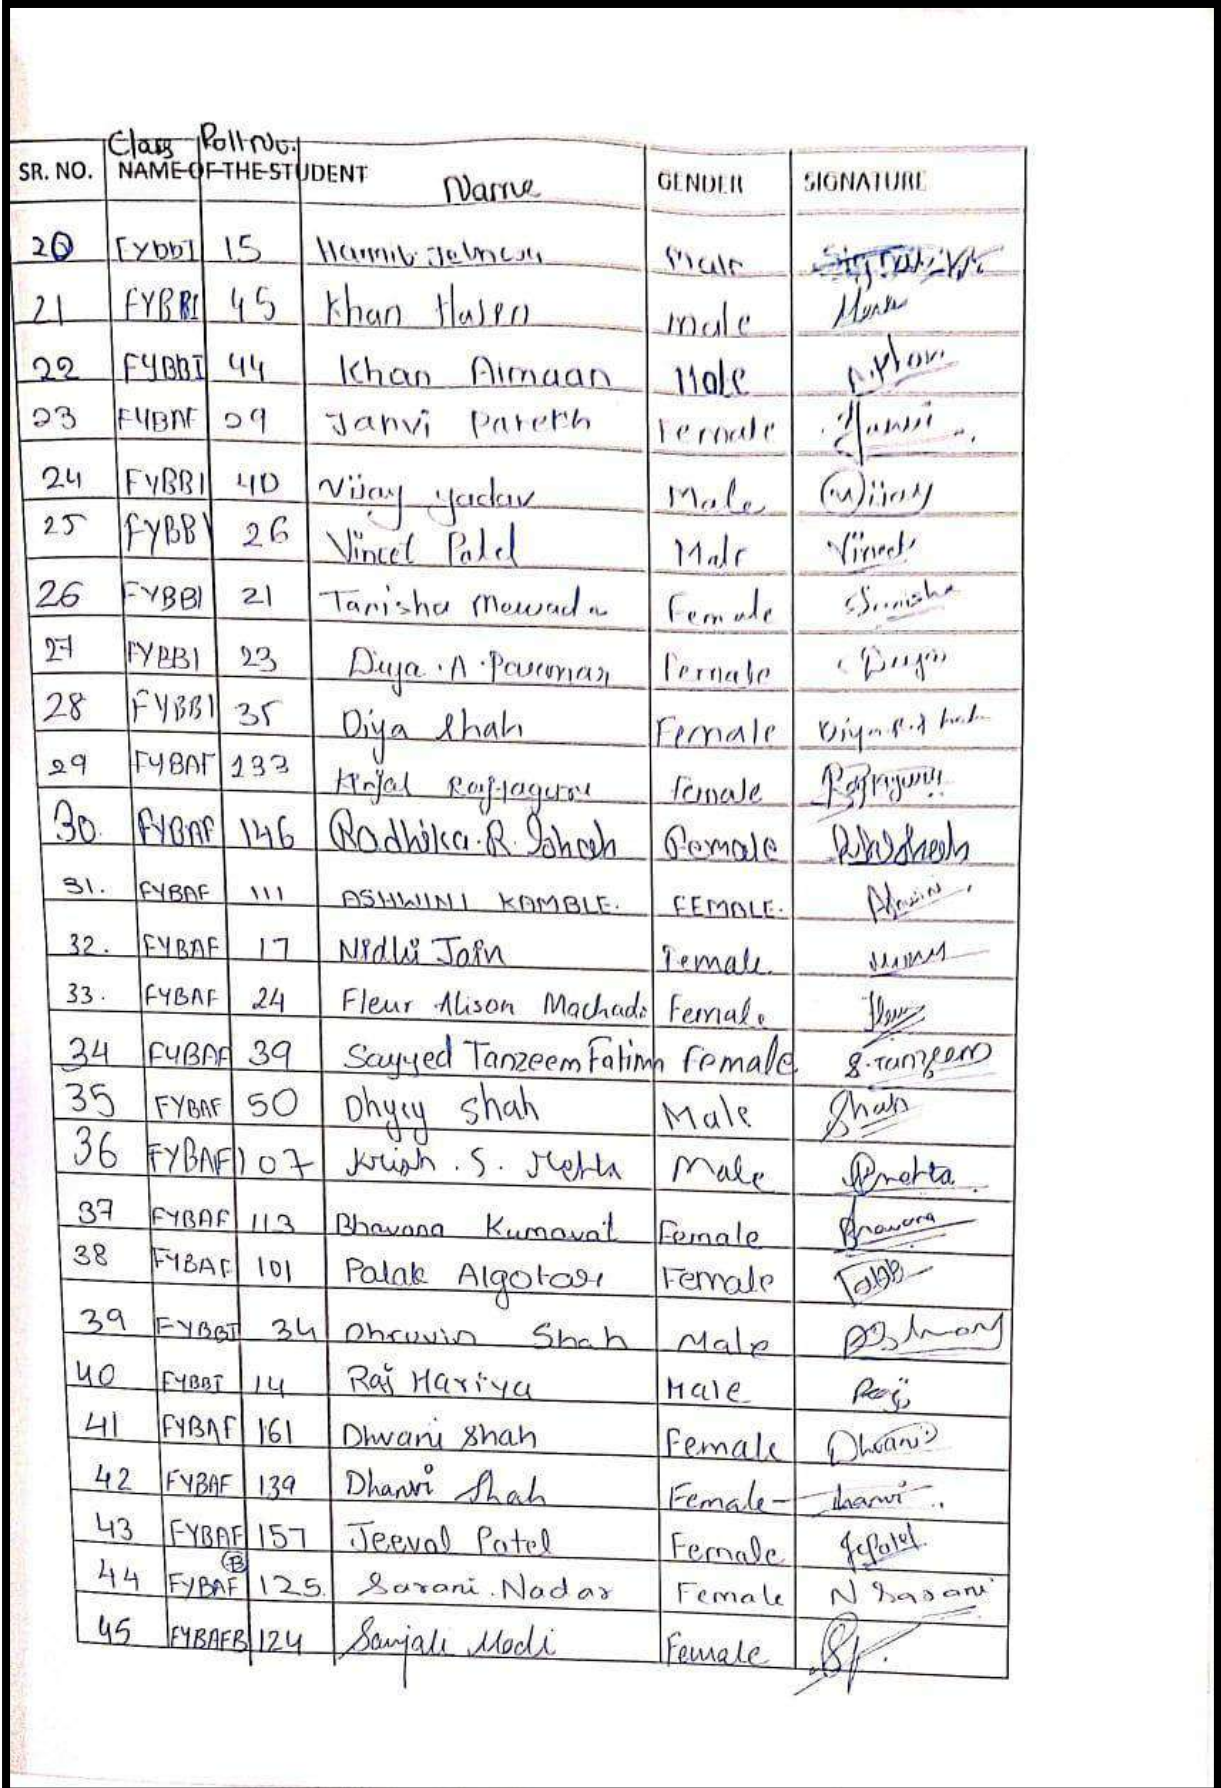 Class Roll No.
SR. NO. NAME OF THE STUDENT Name GENDER SIGNATURE
20 FYBBI 15 Male
21 FYBBI 45 Khan Hasan male
22 FYBBI 44 Khan Aimaan Male
23 FYBAF 29 Janvi Parekh Female Janvi
24 FYBBI 40 Vijay Yadav Male Vijay
25 FYBBI 26 Vineet Patel Male Vineet
26 FYBBI 21 Tanisha Mewada Female Tanisha
27 FYBBI 23 Diya . A . Parmar Female Diya
28 FYBBI 35 Diya Shah Female
29 FYBAF 133 Kinjal Rajyaguru Female Rajyaguru
30. FYBAF 146 Radhika. R. Female
31. FYBAF 111 ASHWINI KAMBLE. FEMALE. Ashwini
32. FYBAF 17 Nidhi Jain Female
33. FYBAF 24 Fleur Alison Machado Female
34 FYBAF 39 Sayyed Tanzeem Fatima Female S. Tanzeem
35 FYBAF 50 Shah Male Shah
36 FYBAF 107 Krish . S. Mehta Male
37 FYBAF 113 Bhavana Kumavat Female Bhavana
38 FYBAF 101 Palak Algotar Female
39 FYBBI 34 Dhruvin Shah Male
40 FYBBI 14 Raj Hariya Male Raj
41 FYBAF 161 Dhvani Shah Female Dhvani
42 FYBAF 139 Dhanvi Shah Female Dhanvi
43 FYBAF 157 Jeeval Patel Female JPatel
44 FYBAF B 125. Sarani. Nadar Female N Sarani
45 FYBAFB 124 Sanjali Modi Female